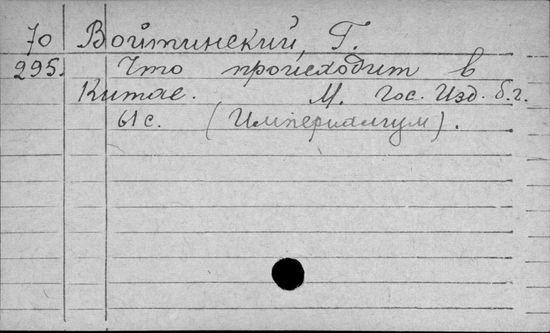 70 Войтинский, Г.
295. Что происходит в
Китае. М. Гос. Изд. б.г.
61 с. (Империализм).